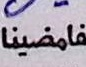 فامضينا